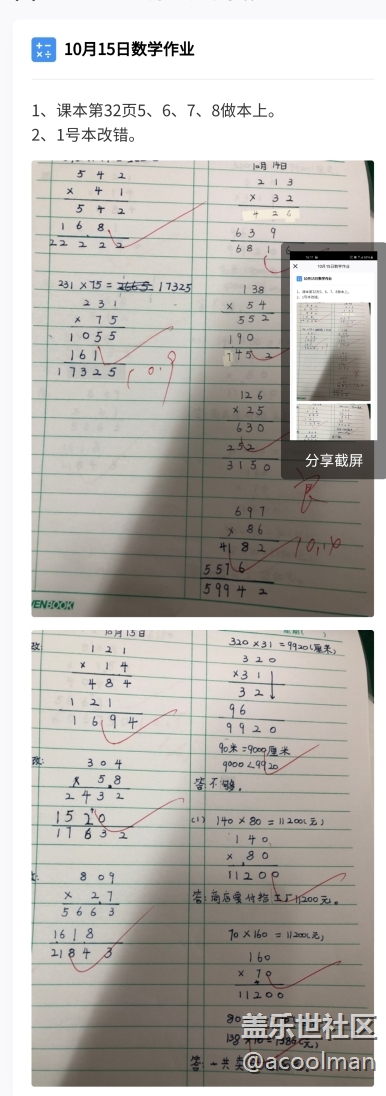 10月15日数学作业
1、课本第32页5、6、7、8做本上。
2、1号本改错。
5 4 2
× 4 1
5 4 2
1 6 8
2 2 2 2 2
231×75=17325
2 3 1
× 7 5
1 0 5 5
1 6 1
1 7 3 2 5
10月14日
2 1 3
× 3 2
4 2 6
6 3 9
6 8 1 6
1 3 8
× 5 4
5 5 2
1 9 0
7 4 5 2
1 2 6
× 2 5
6 3 0
2 5 2
3 1 5 0
6 9 7
× 8 6
4 1 8 2
5 5 7 6
5 9 9 4 2
10月15日数学作业
分享截屏
VENBOOK
10月15日
改:
1 2 1
× 1 4
4 8 4
1 2 1
1 6 9 4
改:
3 0 4
× 5 8
2 4 3 2
1 5 2 0
1 7 6 3 2
8 0 9
× 2 7
5 6 6 3
1 6 1 8
2 1 8 4 3
320×31=9920(厘米)
3 2 0
×3 1
3 2
9 6
9 9 2 0
90米=9000厘米
9000<9920
答:不够。
(1) 140×80=11200(元)
1 4 0
× 8 0
1 1 2 0 0
答:商店要付给工厂11200元。
70×160=11200(元)
1 6 0
× 7 0
1 1 2 0 0
答:一共
盖乐世社区
@acoolman